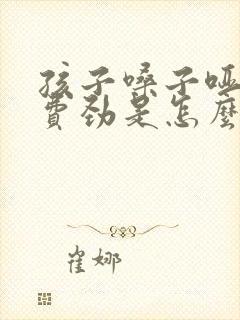 孩子嗓子哑
费劲是怎麼
崔娜